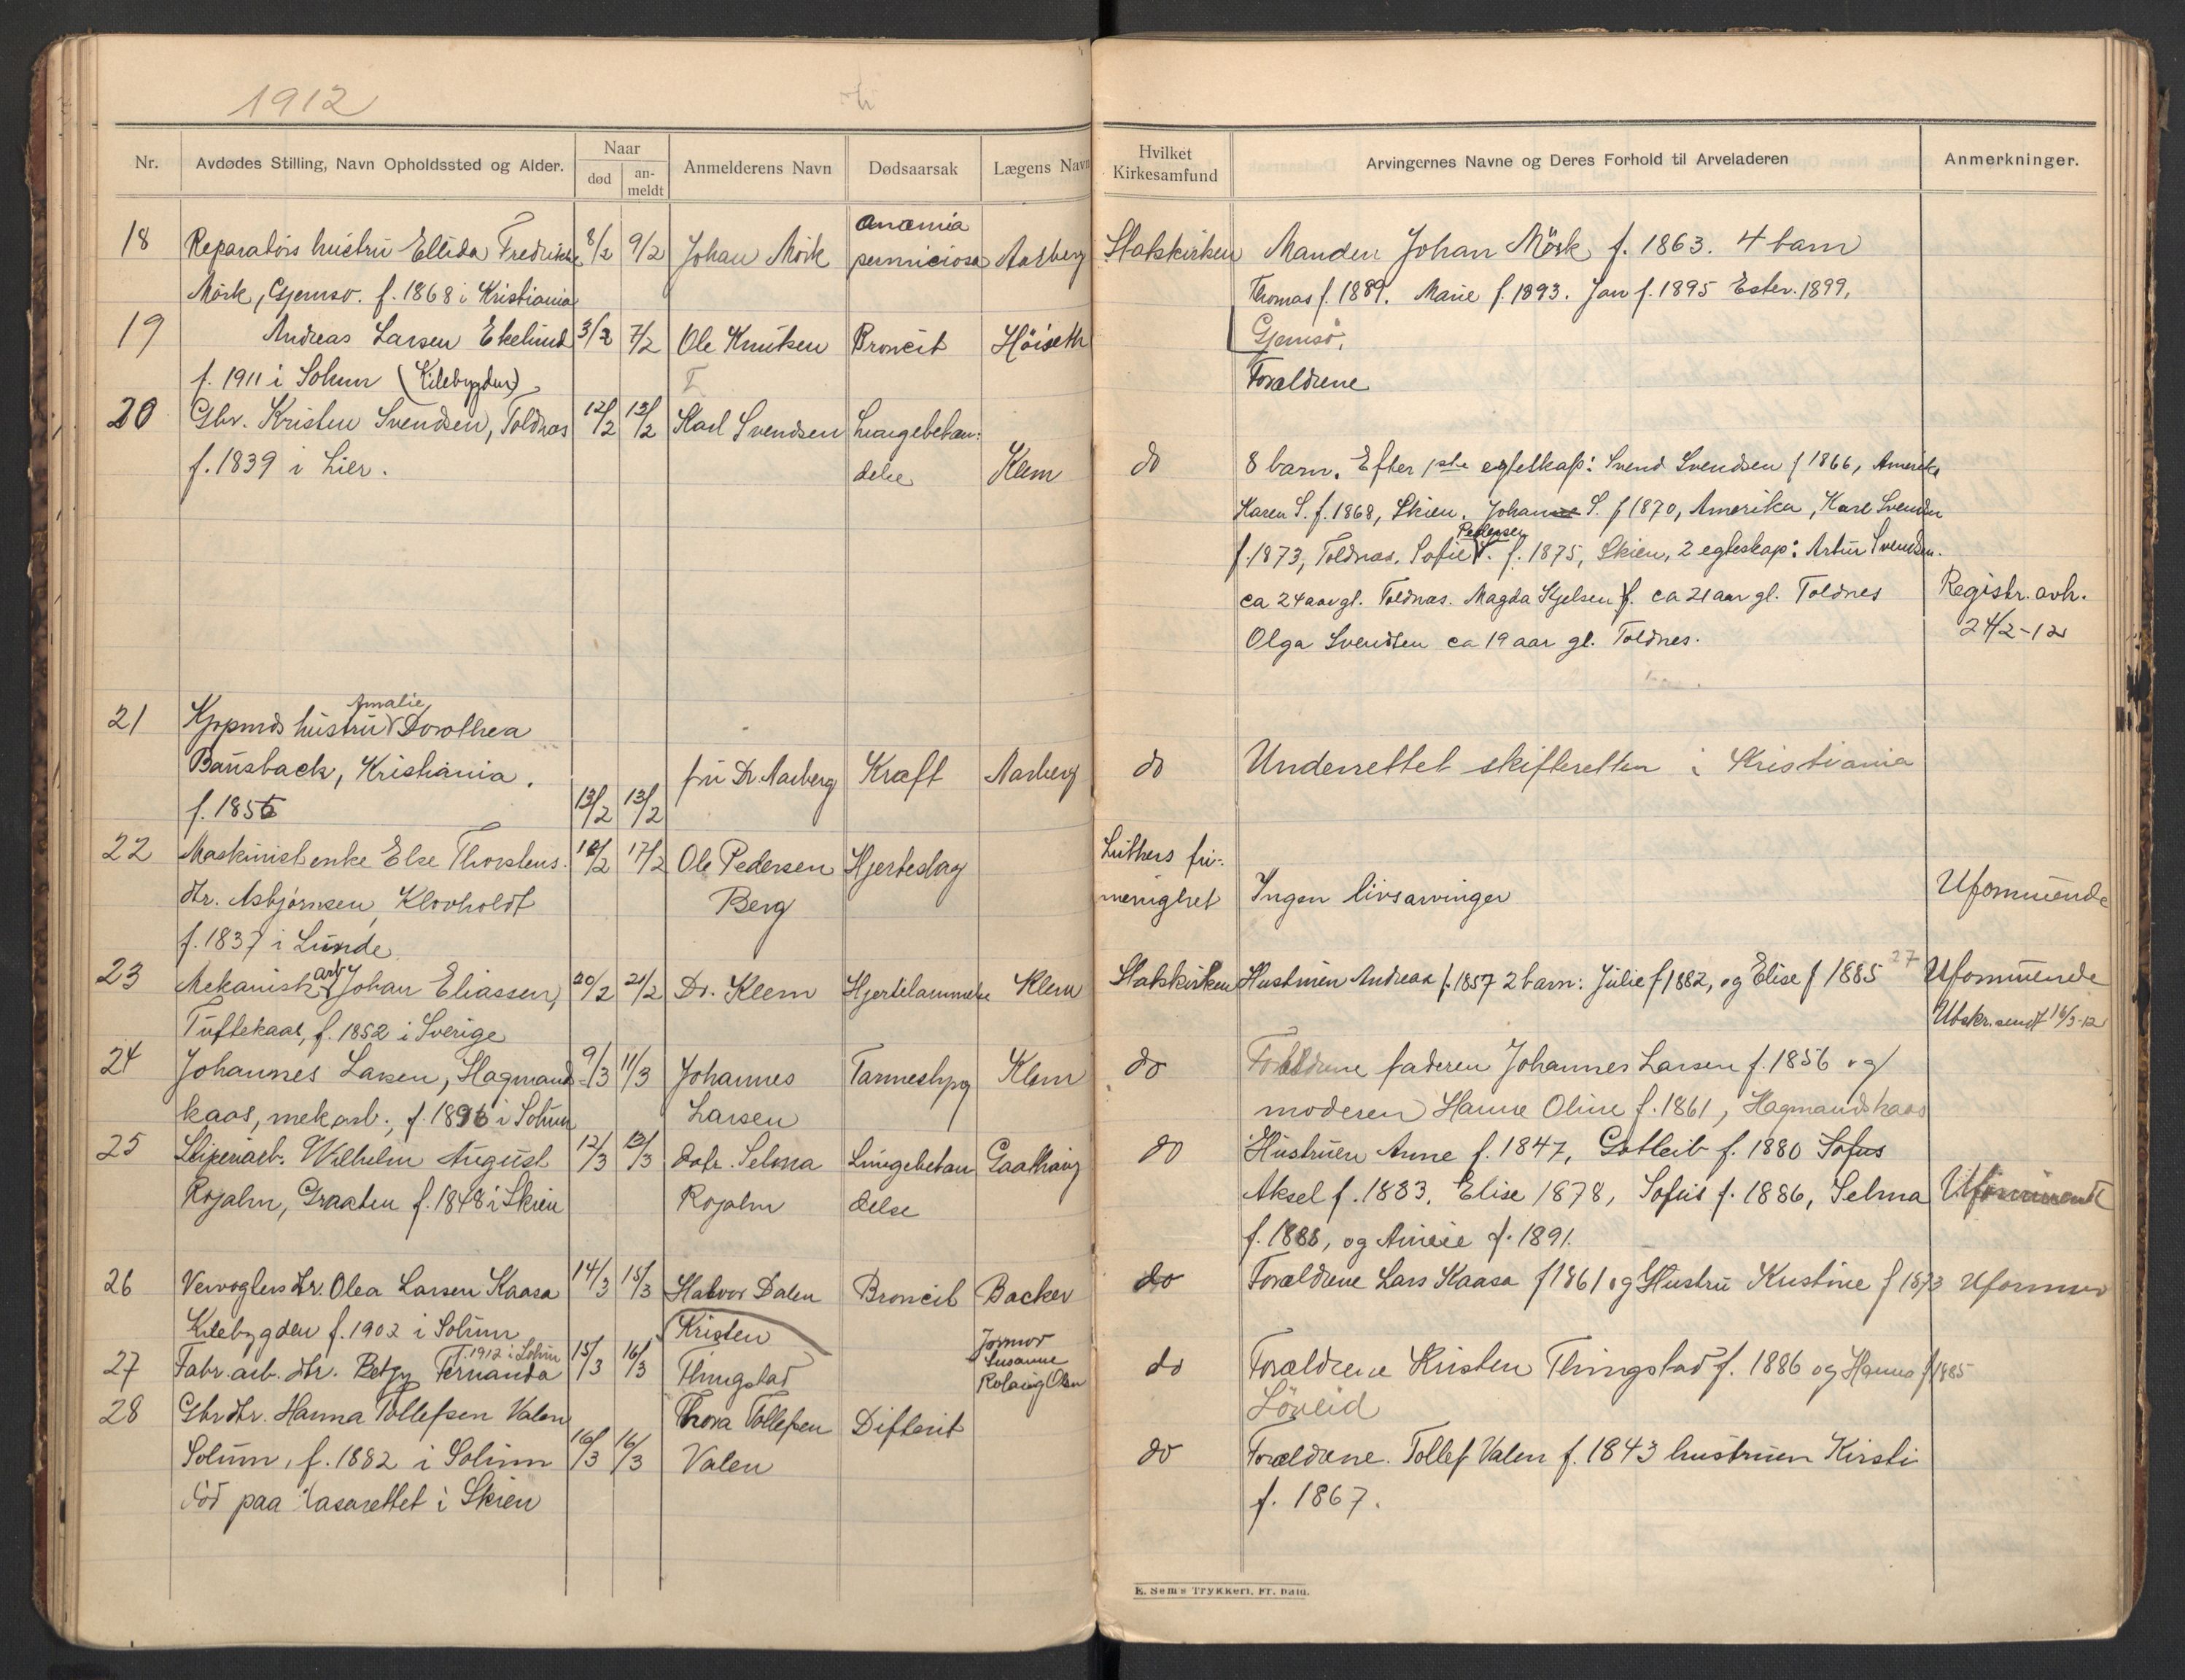 1912
Nr.
Avdødes Stilling, Navn Opholdssted og Alder.
Naar
død
an-
meldt
Anmelderens Navn
Dødsaarsak
Lægens Navn
18 Reparatörs hustru Ellida Fredrikke 8/2 9/2 Johan Mörk anæmia perniciosa Aarberg
Mörk, Gjemsø. f. 1868 i Kristiania
19 Andreas Larsen Ekelund 3/2 7/2 Ole Knutsen Broncit Höiseth
f. 1911 i Solum (Kilebygden)
20 Gbr. Kristen Svendsen, Toldnæs 12/2 13/2 Karl Svendsen Lungebetæn-
f. 1839 i Lier. delse Klem
21 Kjøpmds hustru Amalie Dorothea
Bausback, Kristiania. fru Dr. Aarberg Kræft Aarberg
f. 1856 13/2 13/2
22 Maskinist enke Else Thorstens. 16/2 17/2 Ole Pedersen Hjerteslag
dtr. Asbjørnsen, Klovholdt Berg
f. 1837 i Lunde
23 Mekanisk arb. Johan Eliassen, 20/2 21/2 Dr. Klem Hjertelammelse Klem
Tuftekaas, f. 1852 i Sverige
24 Johannes Larsen, Hagmands- 9/3 11/3 Johannes Tarmeslyng Klem
kaas, mek arb., f. 1896 i Solum Larsen
25 Sliperiarb. Wilhelm August 12/3 13/3 datr. Selma Lungebetæn
Rojahn, Graaten f. 1848 i Skien Rojahn delse
26 Vervoglers dr. Olea Larsen Kaasa 14/3 15/3 Halvor Dalen Broncit Backer
Kilebygden f. 1902 i Solum Kristen Jormor
f. 1912 i Solum Susanne
27 Fabr. arb. dtr. Betzy Fernanda 15/3 16/3 Thingstad Olsen
28 Gbr dtr. Hanna Tollefsen Valen Thora Tollefsen Difterit
Solum, f. 1882 i Solum 16/3 16/3 Valen
död paa Lasarettet i Skien
Hvilket
Kirkesamfund
Arvingernes Navne og Deres Forhold til Arveladeren
Anmerkninger.
Statskirken Manden Johan Mörk f. 1863. 4 barn
Thomas f. 1889. Marie f. 1893. Jan f. 1895 Ester. 1899,
Gjemsö.
Forældrene
do 8 barn. Efter 1ste egteskap: Svend Svendsen f 1866, Amerika
Karen S. f. 1868, Skien. Johanne S. f 1870, Amerika, Karl Svendsen
Pedersen
f. 1873, Toldnæs. Sofie f. 1875, Skien, 2 egteskap: Artur Svendsen.
ca 24 aar gl. Toldnæs. Magda Kjelsen f. ca 21 aar gl. Toldnes Registr. avh.
Olga Svendsen ca 19 aar gl. Toldnes. 24/2-12
do Underrettet skifteretten i Kristiania
Luthers fri-
menighet Ingen livsarvinger Uformuende
Statskirken Hustruen Andrea f. 1857 2 barn: Julie f 1882, og Elise f 1885 27 Uformuende
Utskr. sendt 16/3-12
do Forældrene faderen Johannes Larsen f. 1856 og
moderen Hanne Oline f. 1861, Hagmandskaas
do Hustruen Anne f. 1847, Gotleib f. 1880 Sofus
Aksel f. 1883. Elise 1878, Sofus f. 1886, Selma Uformuende
f. 1888, og f. 1891.
do Forældrene Lars Kaasa f 1861 og Hustru Kristine f 1873 Uformue
do Forældrene Kristen Thingstad f. 1886 og Hanna f 1885
Löveid
do Forældrene. Tollef Valen f. 1843 hustruen Kirsti
f. 1867.
E. Sem's Trykkeri, Fr. hald.